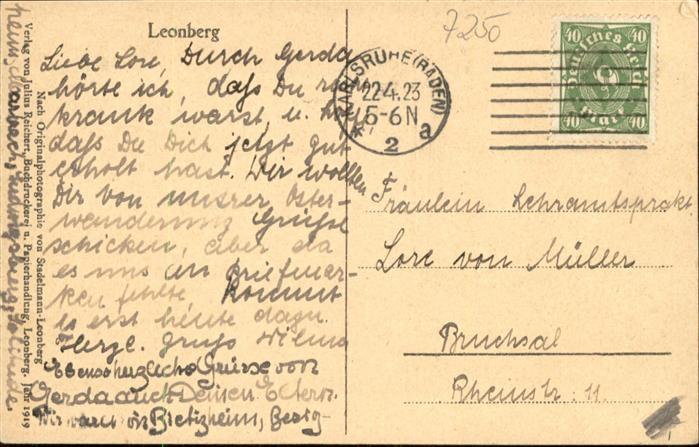 Leonberg
Liebe Lore, Durch Gerda
hörte ich, daß Du so
krank warst, u.
daß Du Dich jetzt gut
erholt hast. Wir wollten
Dir von unsrer Oster-
wanderung Grüße
schicken, aber da
es uns an Briefmar-
ken fehlte, kommt
es erst heute dazu.
Herzl. Gruß Wilma
Ebenso herzliche Grüsse von
Gerda auch Deinen Eltern.
Wir waren in Bietigheim, Besig-
heim,
Verlag von Julius Reichert, Buchdruckerei u. Papierhandlung, Leonberg. Juli 1919
Nach Originalphotographie von Stadelmann-Leonberg
7250
KARLSRUHE (BADEN)
22.4.23
5-6 N
* 2 a
40 40
Deutsches Reich
Mark
40 40
Fräulein Lehramtsprakt
Lore von Müller
Bruchsal
Rheinstr. 11.